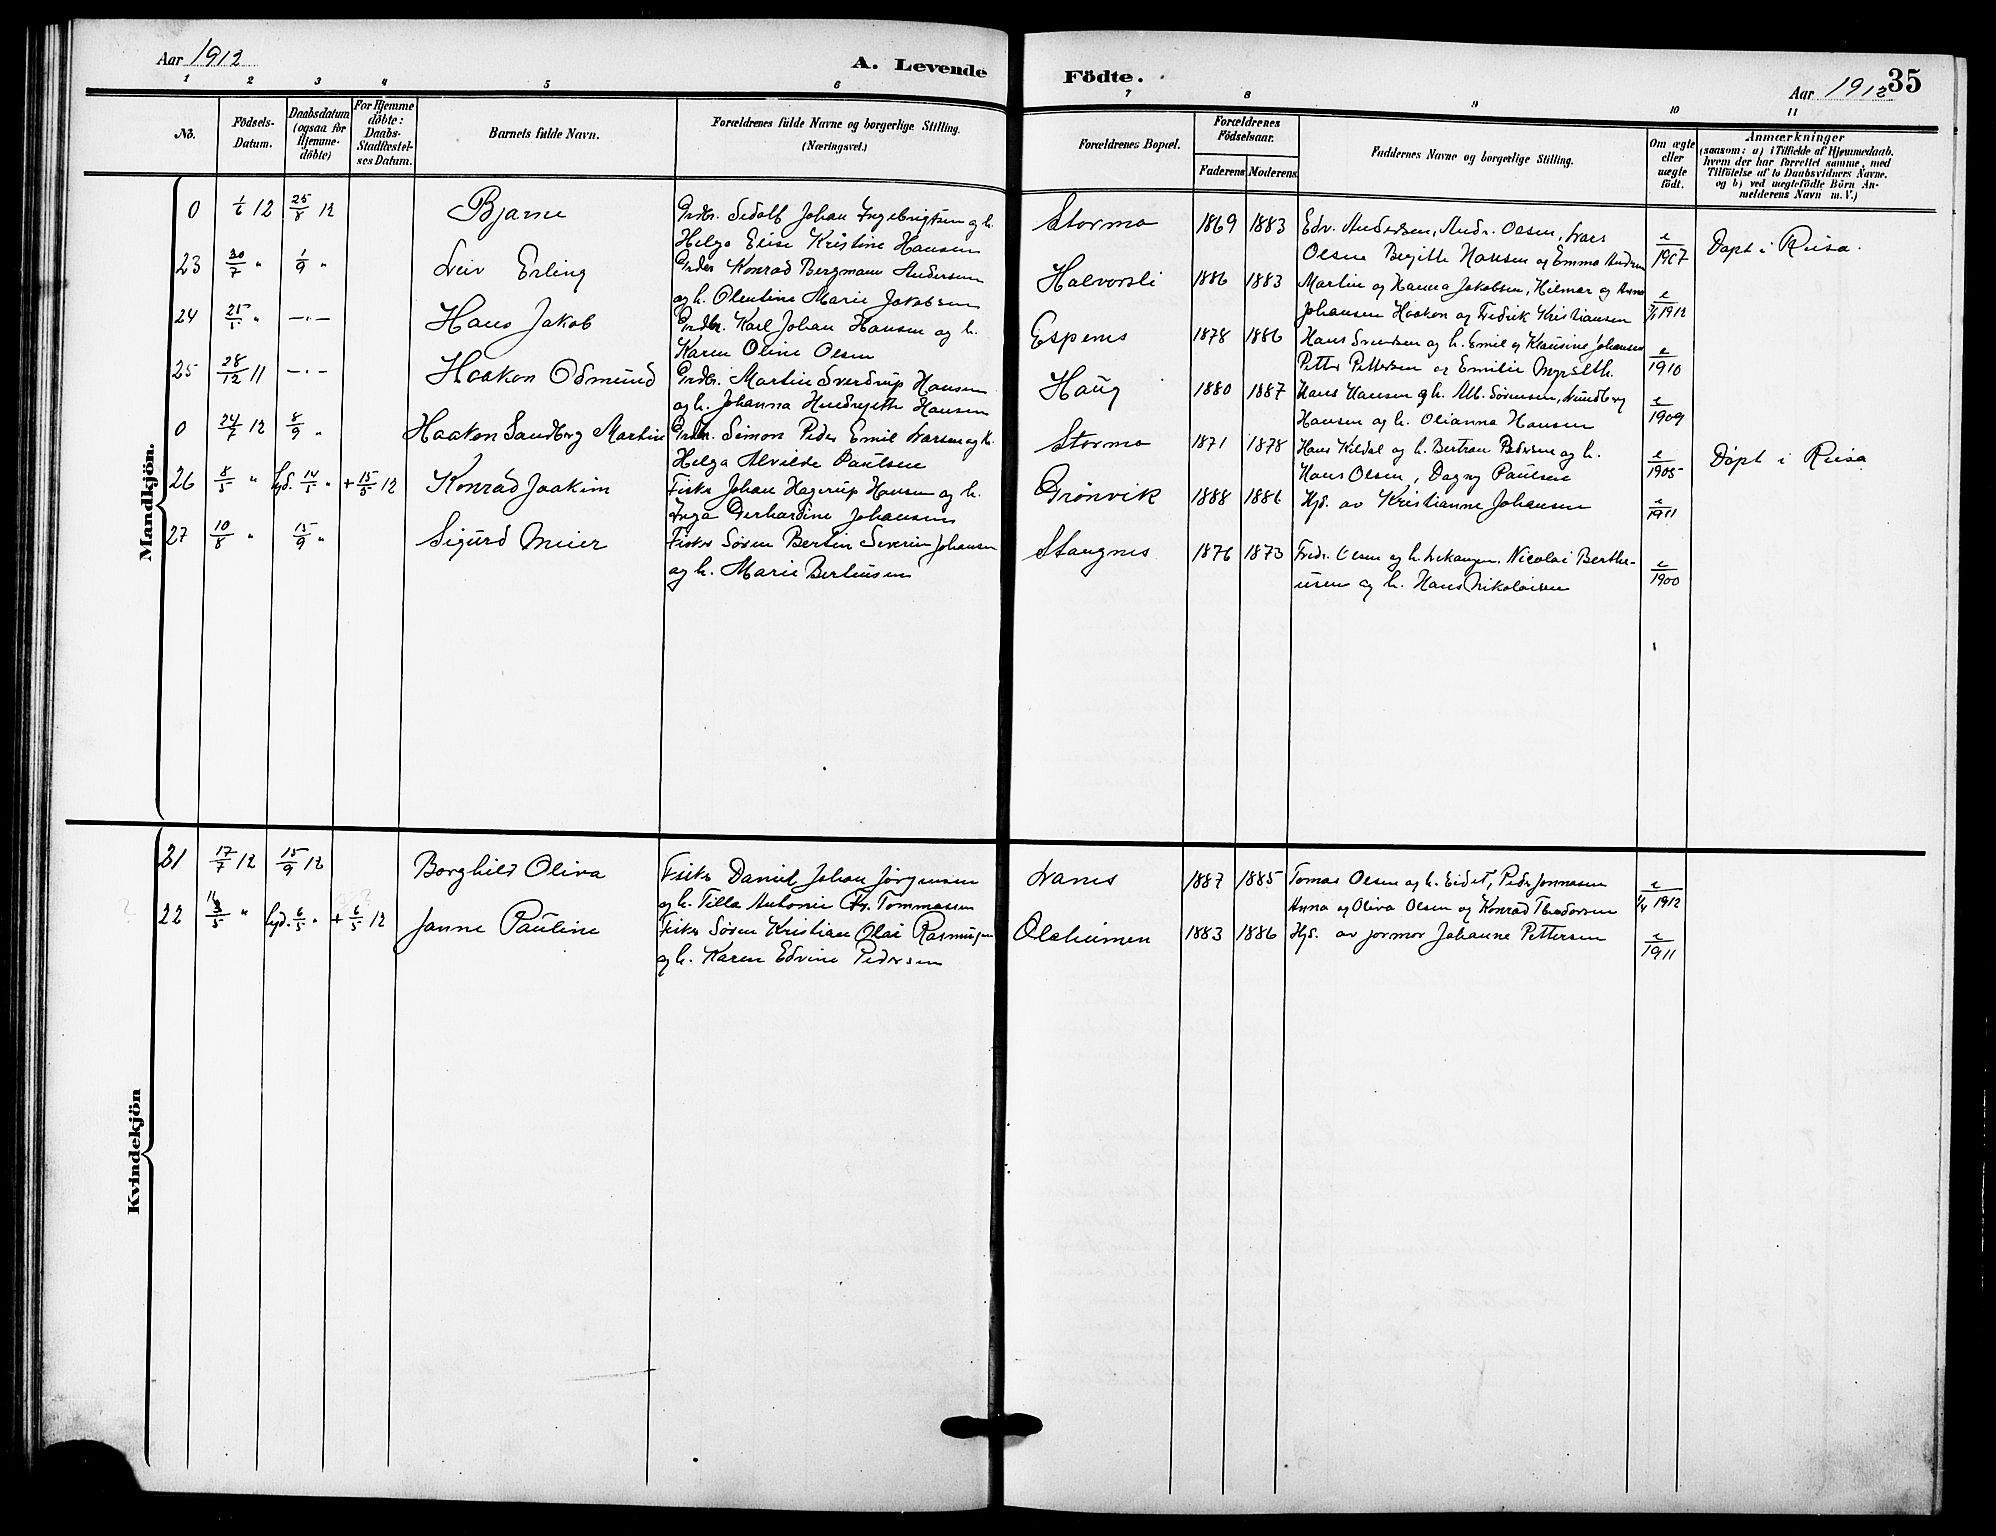 Aar 1912 A. Levende Födte. Aar 1912 35
1 2 3 4 5 6 7 8 9 10 11
Nö. Födsels-Datum. Daabsdatum (ogsaa for Hjemme-döbte) For Hjemme döbte: Daabs-Stadfæstel-ses Datum. Barnets fulde Navn. Forældrenes fulde Navne og borgerlige Stilling. (Næringsvei.) Forældrenes Bopæl. Forældrenes Födselsaar. Faderens Moderens Faddernes Navne og borgerlige Stilling. Om ægte eller uægte födt. Anmærkninger
(saasom: a) i Tilfælde af Hjemmedaab, hvem der har forrettet samme, med Tilföielse af to Daabsvidners Navne. og b) ved uægtefödte Börn An-melderens Navn m. V.)
Mandkjön.
0 1/6 12 25/8 12 Bjarne Grdbr. Sedolf Johan Ingebrigtsen og h. Stormo 1869 1883 Edv. Andersen, Andr. Olsen, Lars e/1907 Døpt i Reisa.
Helga Elise Kristine Hansen Olsen Birgitte Hansen og Emma
23 30/7 " 1/9 " Leiv Erling Konrad Bergmann Andersen Halvorsli 1886 1883 Martin og Hanna Jakobsen, Hilmar og Anna e/1912
og h. Olentine Marie Jakobsen Johansen Haakon og Fredrik Kristiansen
24 25/5 " —"— Hans Jakob Grdbr. Karl Johan Hansen og h. Espenes 1878 1886 Hans Svendsen og h. Emil og Klausine Johansen e/1910
Karen Oline Olsen Petter Pettersen og Emilie
25 28/12 11 —"— Haakon Odmund Grdbr. Martin Sverdrup Hansen Haug 1880 1887 Hans Hansen og h. Alb. Sørensen, e/1909
og h. Johanna Hansen Hansen og h. Olianna Hansen
0 24/7 12 8/9 " Haakon Sandberg Martin Grdbr. Simon Peder Emil Larsen og h. Stormo 1871 1878 Hans Kildal og h. Bertran Pedersen og h. e/1905 Døpt i Reisa
Helga Alvilde Paulsen Hans Olsen, Dagny Paulsen
26 8/5 " hjd. 14/5 " + 15/5 12 Konrad Joakim Fisker Johan Hagerup Hansen og h. Grønvik 1888 1886 Hjd. av Kristianne Johansen e/1911
Inga Gerhardine Johansen
27 10/8 " 15/9 " Sigurd Meier Fisker Søren Bertin Severin Johansen Stangnes 1876 1873 Fredr. Olsen og h. Nicolai Berthe- e/1900
og h. Marie Berteusen usen og h. Hans Nikolaisen
Kvindekjön
21 17/7 12 15/9 12 Borghild Oliva Fisker Daniel Johan Jørgensen Lanes 1887 1885 Tomas Olsen og h. Eidet, Peder Jonnasen e/1912
og h. Tilla Antonie Tommassen Anna og Oliva Olsen og Konrad Theodorsen
22 /5 " hjd. 6/5 " + 6/5 12 Janne Pauline Fisker Søren Kristian Olai Rasmussen Olaheimen 1883 1886 Hjd. av jormor Johanne Pettersen e/1911
og h. Karen Edvine Pedersen